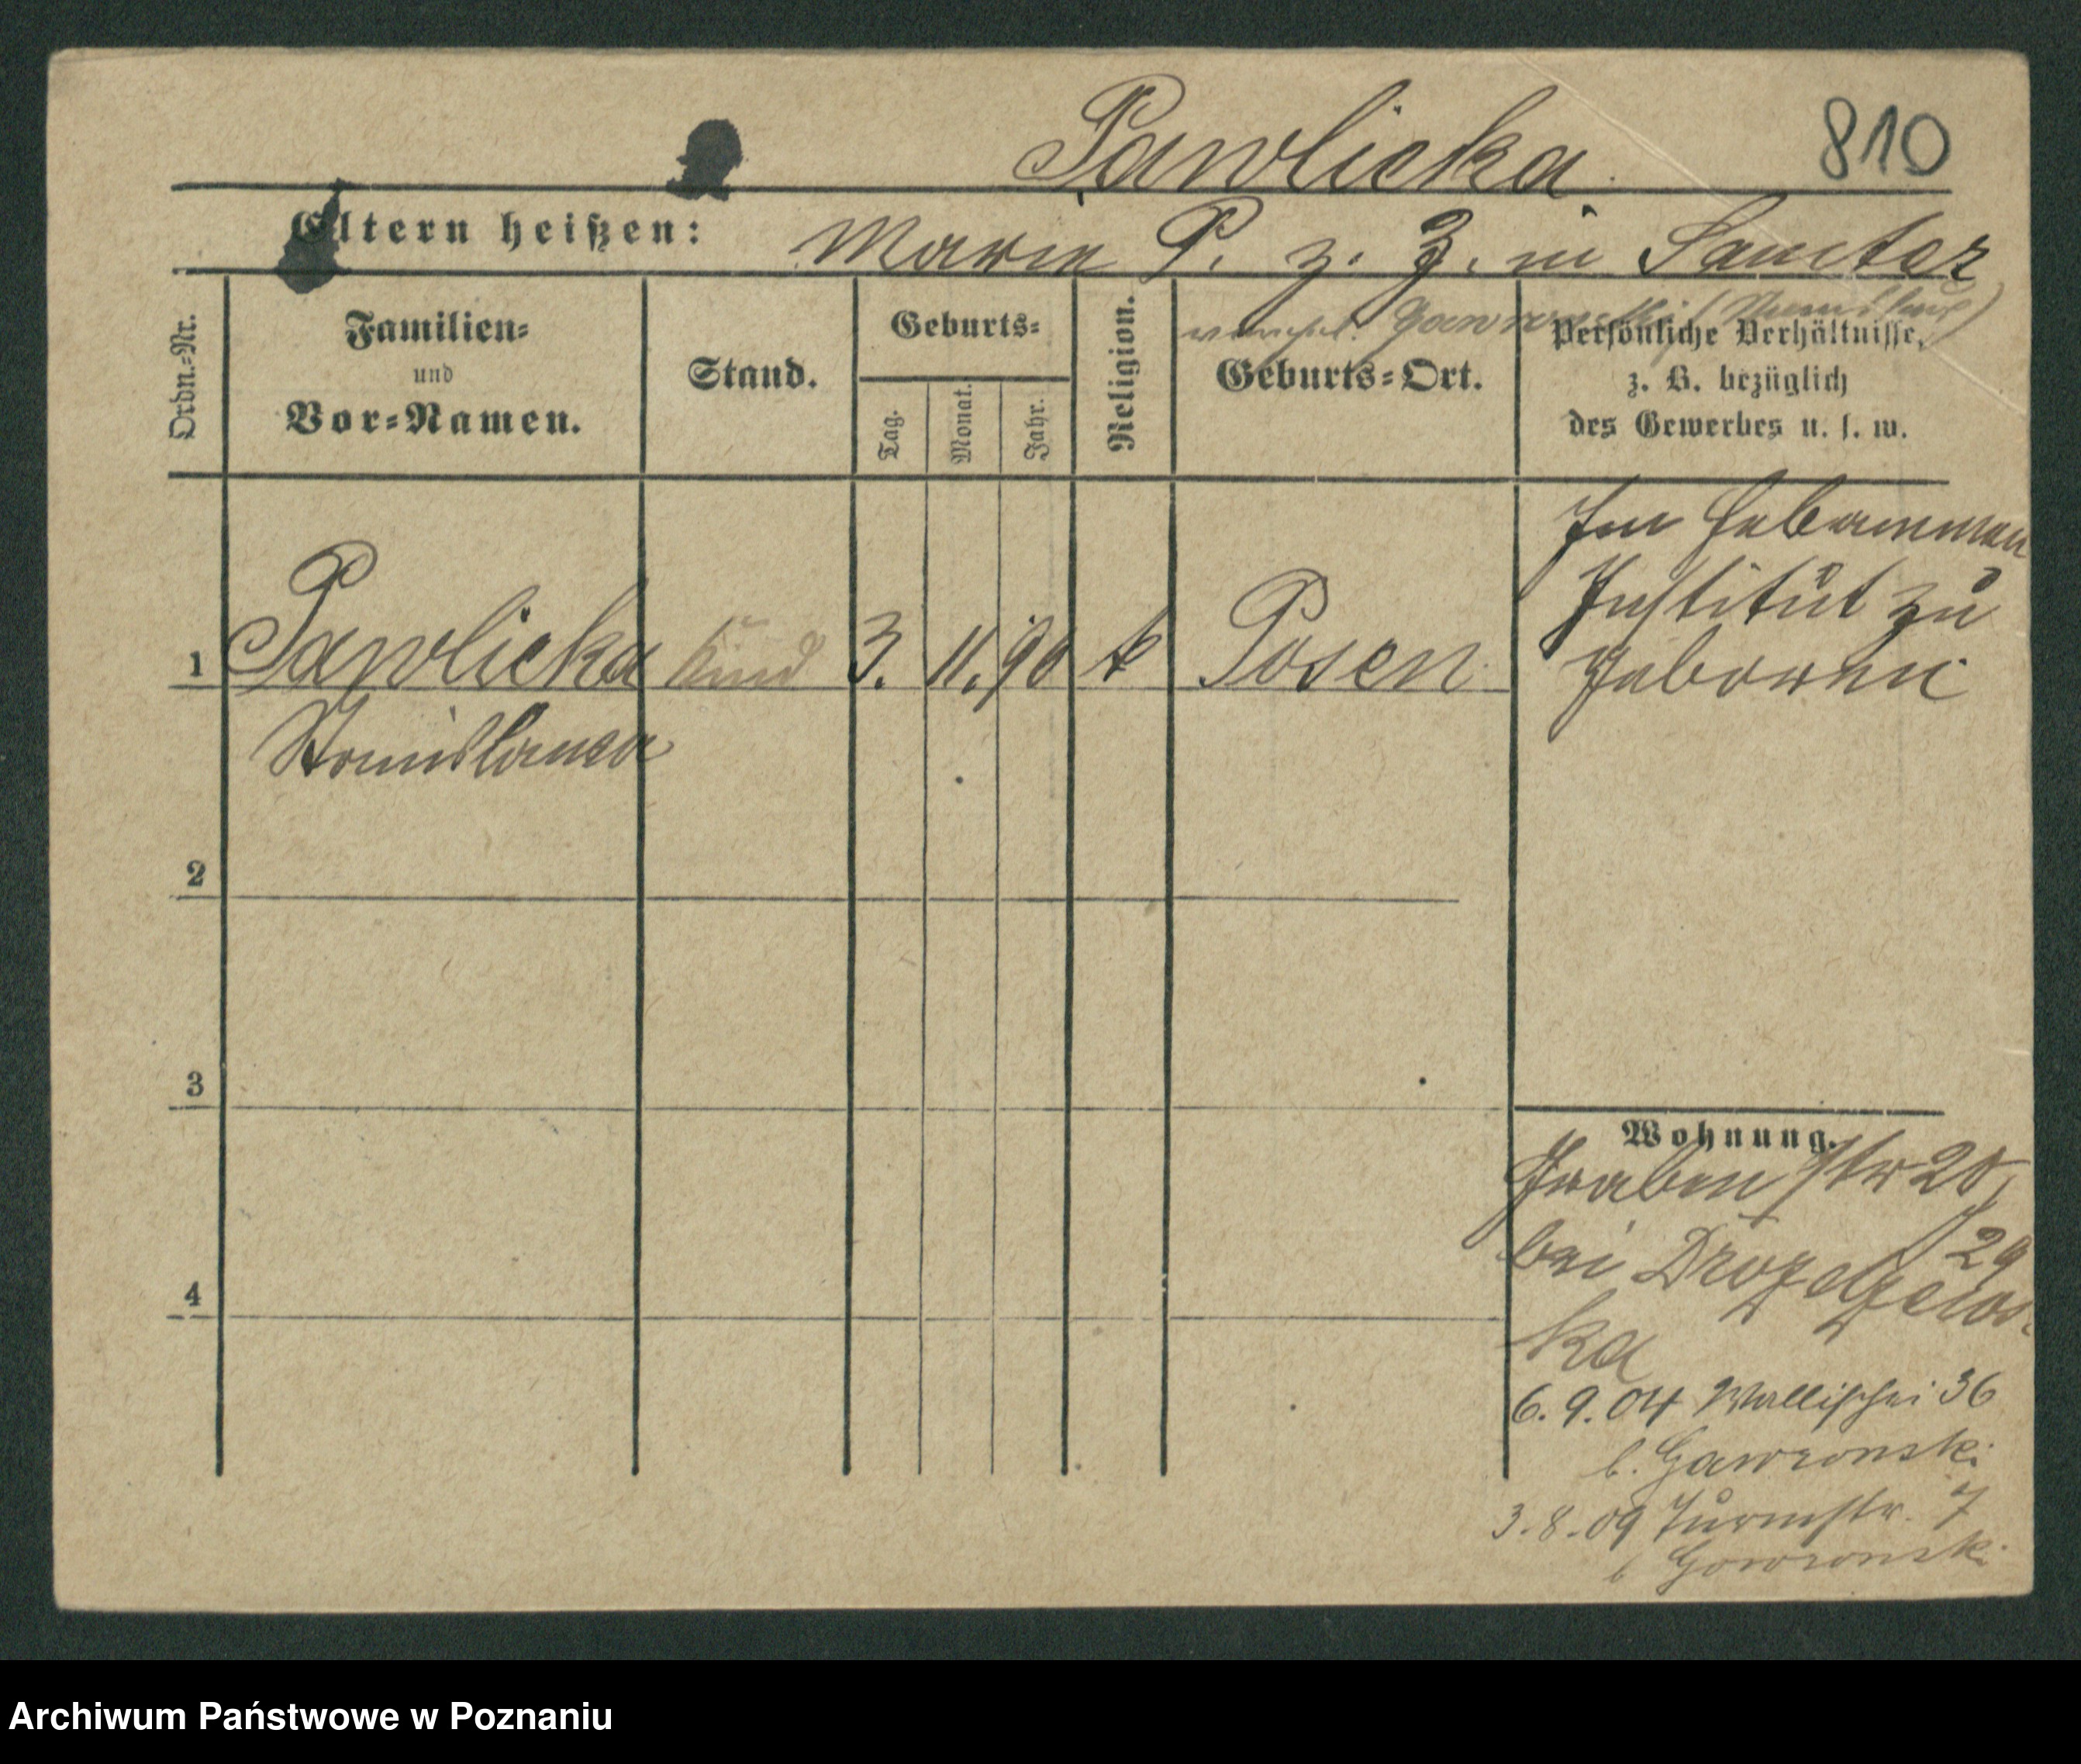 Pawlicka
810
Eltern heißen: Marie P. z. Z. in Samter
verehel. Gawronski (Stanislaus)
Ordn.-Nr.
Familien-
und
Vor-Namen.
Stand.
Geburts-
Tag.
Monat.
Jahr.
Religion.
Geburts-Ort.
Persönliche Verhältnisse,
z. B. bezüglich
des Gewerbes u. s. w.
Im Hebammen
Institut zu
Geboren
1 Pawlicka Kind 3. 11. 90 k Posen
Stanislawa
2
3
4
Wohnung.
Grabenstr 25,
29
bei
ka
6.9.04 Wallischei 36
b. Gawronski
3.8.09 Turmstr. 7
b Gawronski
Archiwum Państwowe w Poznaniu